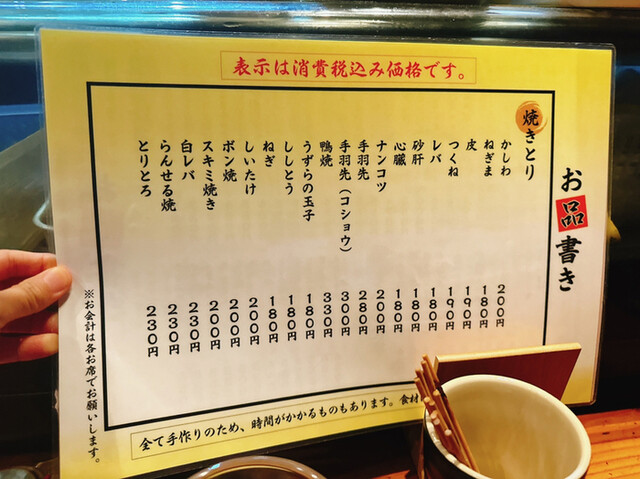 表示は消費税込み価格です。
お品書き
焼きとり
かしわ 200円
ねぎま 180円
皮 190円
つくね 190円
レバ 180円
砂肝 180円
心臓 180円
ナンコツ 200円
手羽先 280円
手羽先(コショウ) 300円
鴨焼 330円
うずらの玉子 180円
ししとう 180円
ねぎ 180円
しいたけ 200円
ボン焼 200円
スキミ焼き 200円
白レバ 230円
らんせる焼 230円
とりとろ 230円
※お会計は各お席でお願いします。
全て手作りのため、時間がかかるものもあります。食材